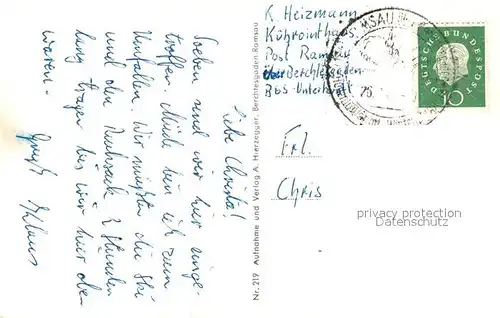 Liebe Christa!
Soeben sind wir hier einge-
troffen. Müde bin ich zum
Umfallen. Wir mußten die Ski
und den Rucksack 2 Stunden
lang tragen bis wir hier oben
waren.
Gruß Klaus
Nr. 219 Aufnahme und Verlag A. Hierzegger, Berchtesgaden-Ramsau
K. Heizmann
Kührointhaus
Post Ramsau
Berchtesgaden
Bbs-Unterkunft
Frl.
Chris
DEUTSCHE BUNDESPOST
10
privacy protection
Datenschutz